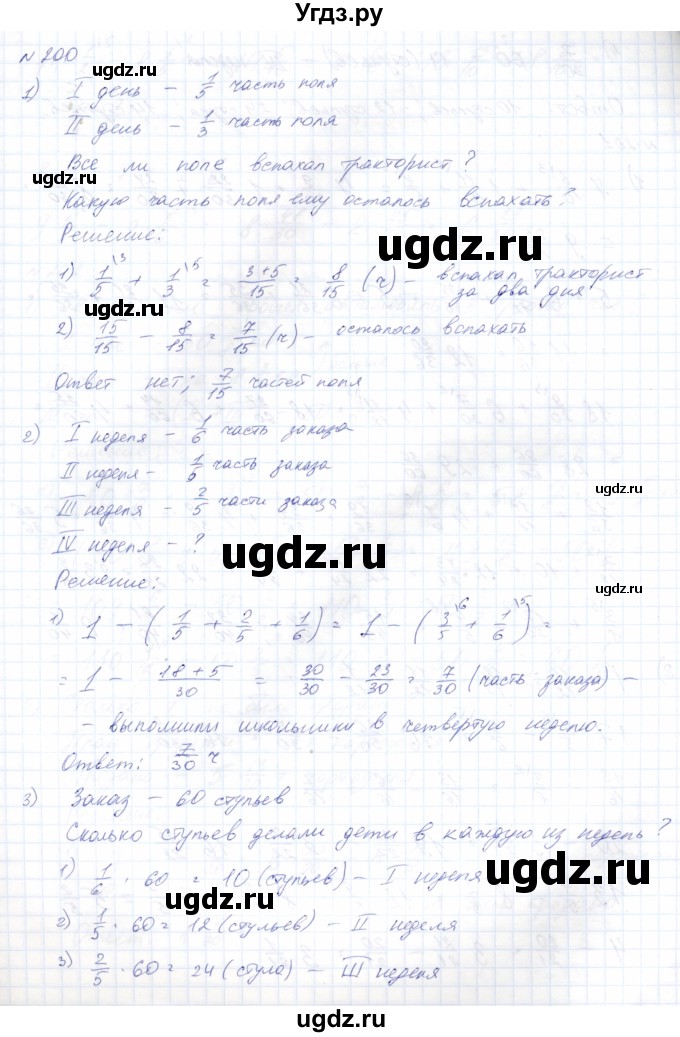 Угдз.ру
N 200
ugdz.ru ugdz.ru
1) I день – 1/5 часть поля
II день – 1/3 часть поля
Все ли поле вспахал тракторист?
ugdz.ru
Какую часть поля ему осталось вспахать?
Решение:
ugdz.ru
1) 1/5 \3 + 1/3 \5 = (3+5)/15 = 8/15 (ч) – вспахал тракторист за два дня
ugdz.ru
2) 15/15 – 8/15 = 7/15 (ч) – осталось вспахать
Ответ нет; 7/15 частей поля
2) I неделя – 1/6 часть заказа
II неделя – 1/5 часть заказа
III неделя – 2/5 части заказа
ugdz.ru
IV неделя – ?
ugdz.ru
Решение:
ugdz.ru
1) 1 – (1/5 + 2/5 + 1/6) = 1 – (3/5 \6 + 1/6 \5) =
= 1 – (18+5)/30 = 30/30 – 23/30 = 7/30 (часть заказа) –
– выполнили школьники в четвертую неделю.
ugdz.ru
Ответ: 7/30 ч
3) Заказ – 60 стульев
Сколько стульев делали дети в каждую из недель?
1) 1/6 · 60 = 10 (стульев) – I неделя
ugdz.ru
ugdz.ru
2) 1/5 · 60 = 12 (стульев) – II неделя
3) 2/5 · 60 = 24 (стула) – III неделя
ugdz.ru
ugdz.ru